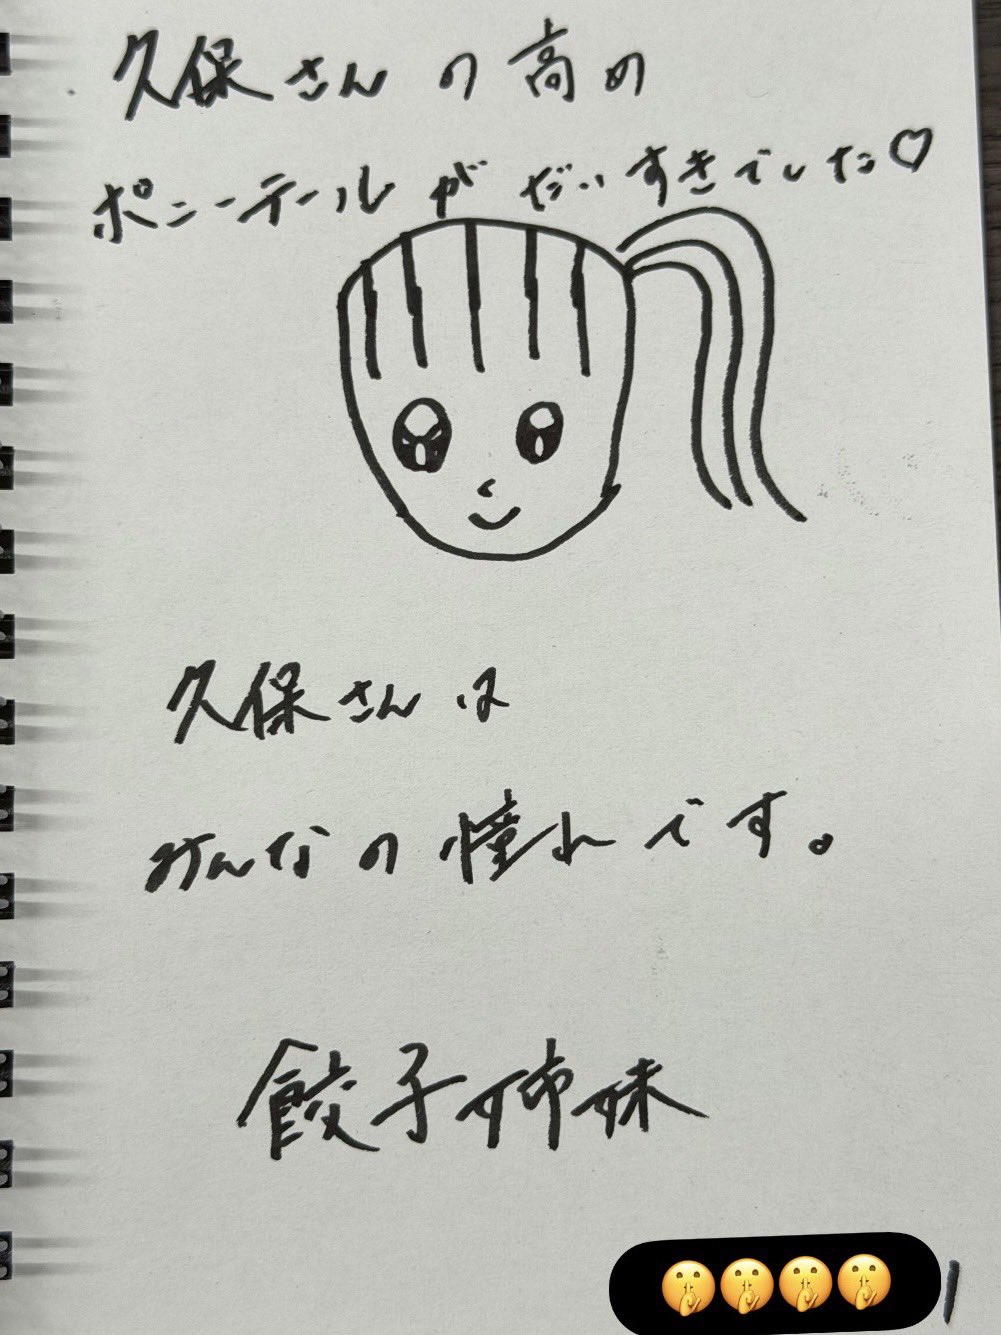 久保さんの高め
ポニーテールがだいすきでした♡
久保さんは
みんなの憧れです。
餃子姉妹
🤫🤫🤫🤫